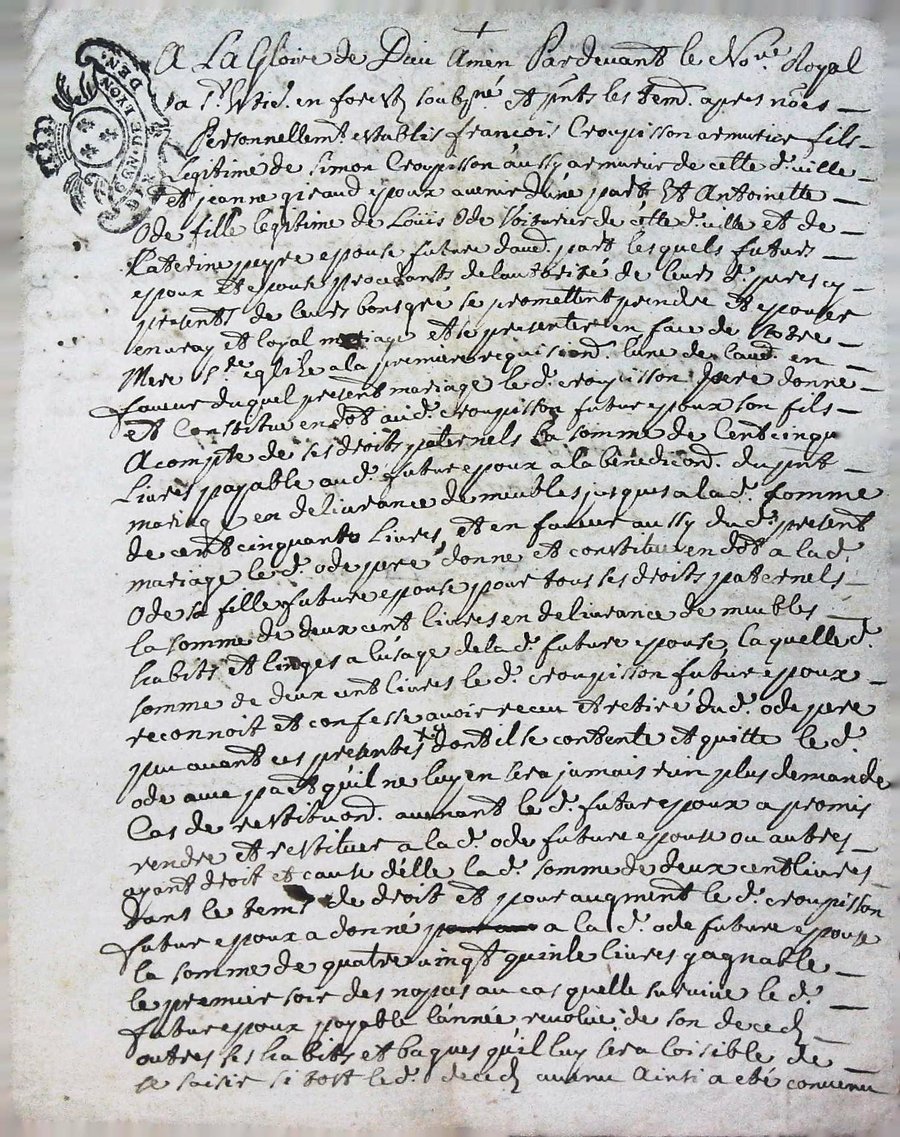 GEN. DE LYON DEN.
A La Gloire de Dieu Amen Pardevant le No.re Royal
a St. Estie. en forestz soubz.né et pnts les tem. apres nōēs
Personnellemt. establis françois Croupisson armurier fils
Legitime de Simon Croupisson aussy armurier de cette d. ville
et jeanne giraud epoux avenir d'une part Et Antoinette
Ode fille legitime de Loüis Ode voiturier de cette d. ville et de
Katerine peyre epouse future d'aud. part lesquels futurs
epoux et epouse procedants de l'authorité de leurs d. peres cy
presents de leurs bons gré se promettent prendre et epouser
en vray et loyal mariage et se presenter en face de notre
Mere Ste. eglize a la premiere requisiond. l'une de l'aud. en
faveur duquel present mariage le d. croupisson pere donne
et Constitue en dot aud. croupisson futur epoux son fils
A compte de ses droits paternels la somme de Cent cinqu
Livres payable aud. futur epoux a la benediCond. du pnt
mariage en delivrance de meubles jusques a la d. somme
de cent cinquante Livres, et en faveur aussy du d. present
mariage le d. ode pere donne et constitue en dot a la d.
Ode sa fille future epouse pour tous ses droits paternels
la somme de deux cent livres en delivrance de meubles
habits et linges a l'usage de la d. future epouse, laquelle d.
somme de deux cent livres le d. croupisson futur epoux
reconnoit et confesse avoir receu et retiré du d. ode pere
peu avant ces presentes dont il se contente et quitte le d.
ode avec pact qu'il ne luy en sera jamais rien plus demandé
Cas de restituond. avenant le d. futur epoux a promis
rendre et restituer a la d. ode future epouse ou autres
ayant droit et cause d'elle la d. somme de deux cent livres
dans le temps de droit et pour augment le d. croupisson
futur epoux a donné a la d. ode future epouse
la somme de quatre vingt quinze livres gagnable
le premier soir des nopces au cas quelle survive le d.
futur epoux payable l'année revolue de son deced
outres ses habits et bagues qu'il luy sera loisible de
se saisir si tost le d. deced avenu Ainsi a eté convenu